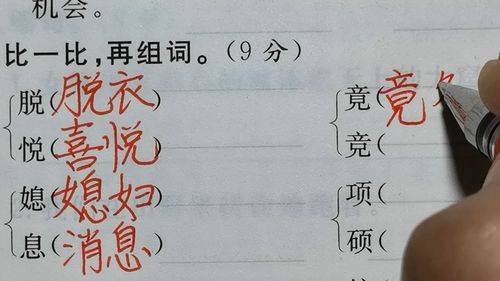 机会。
比一比,再组词。(9分)
脱(脱衣) 竟(竟
悦(喜悦) 竞(
媳(媳妇) 项(
息(消息) 硕(